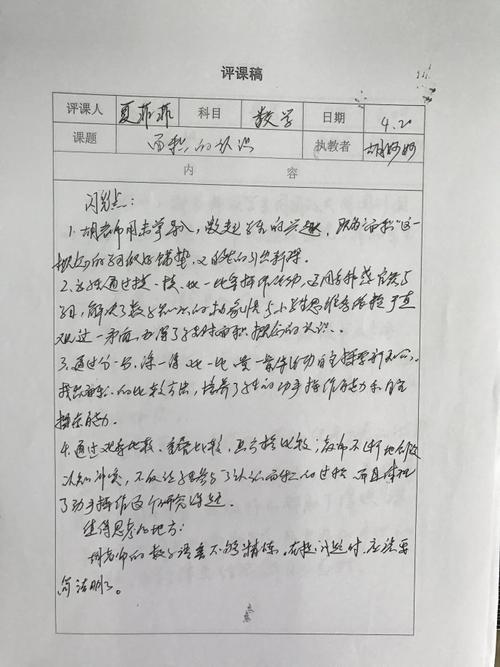 评课稿
评课人 夏菲菲 科目 数学 日期 4.20
课题 面积的认识 执教者 胡婷婷
内 容
闪光点：
1.胡老师用 导入，激起学生的兴趣，既为"面积"这一
概念的 做好铺垫，又自然的引出新课。
2.胡老师通过摸一摸、比一比等操作活动，运用多种感官参与
学习，解决了数学知识的抽象性与小学生思维 依赖于直
观这一矛盾，加深了学生对面积概念的认识。
3.通过分一分、涂一涂、比一比、 等一系列活动自主探索
找出面积的比较方法，培养了学生的动手操作能力和自主
探索能力。
4.通过观察比较、重叠比较、画方格比较；教师不断地创设
认知冲突，不仅让学生参与了认识面积的过程，而且体现
了动手操作及 研究课题。
值得思考的地方：
胡老师的数学语言不够精炼。在提问题时，应该要
简洁明了。